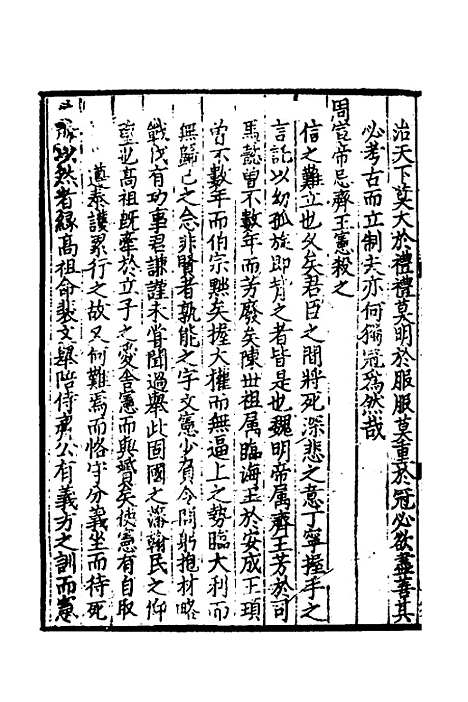 治天下莫大於禮禮莫明於服服莫重於冠必欲盡善其
必考古而立制夫亦何獨冠為然哉
周宣帝忌齊王憲殺之
信之難立也久矣君臣之間將死深悲之意丁寧握手之
言託以幼孤旋即背之者皆是也魏明帝属齊王芳於司
馬懿曽不數年而芳廢矣陳世祖属臨海王於安成王頊
曽不數年而伯宗黜矣握大權而無逼上之勢臨大利而
無歸己之念非賢者孰能之宇文憲少負令問躬抱材略
戰伐有功事君謙謹未甞聞過舉此固國之藩翰民之仰
望也高祖旣牽於立子之愛舍憲而與贇矣使憲有自取
遵泰護累行之故又何難焉而恪守分義坐而待死
所以然者緣高祖命裴文舉陪侍齊公有義方之訓而憲